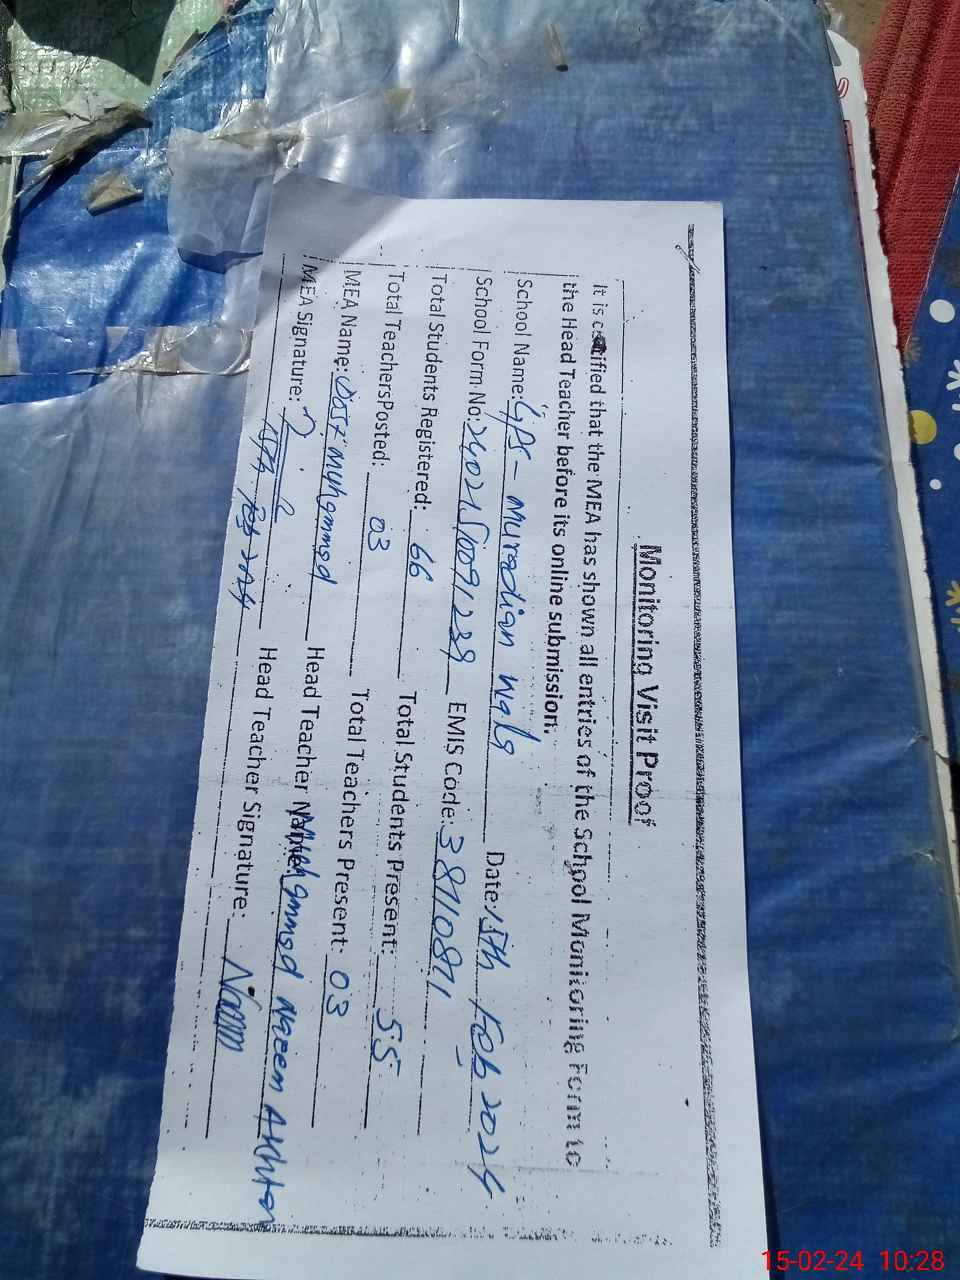 Monitoring Visit Proof
It is certified that the MEA has shown all entries of the School Monitoring Form to
the Head Teacher before its online submission.
School Name: GPS - Muradian Wala Date: 15th Feb 2024
School Form No: EMIS Code: 38710871
Total Students Registered: 66 Total Students Present: 55
Total Teachers Posted: 03 Total Teachers Present: 03
MEA Name: Muhammad Head Teacher Name: Muhammad Naeem Akhtar
MEA Signature: Head Teacher Signature: Naeem
15th Feb 2024
15-02-24 10:28